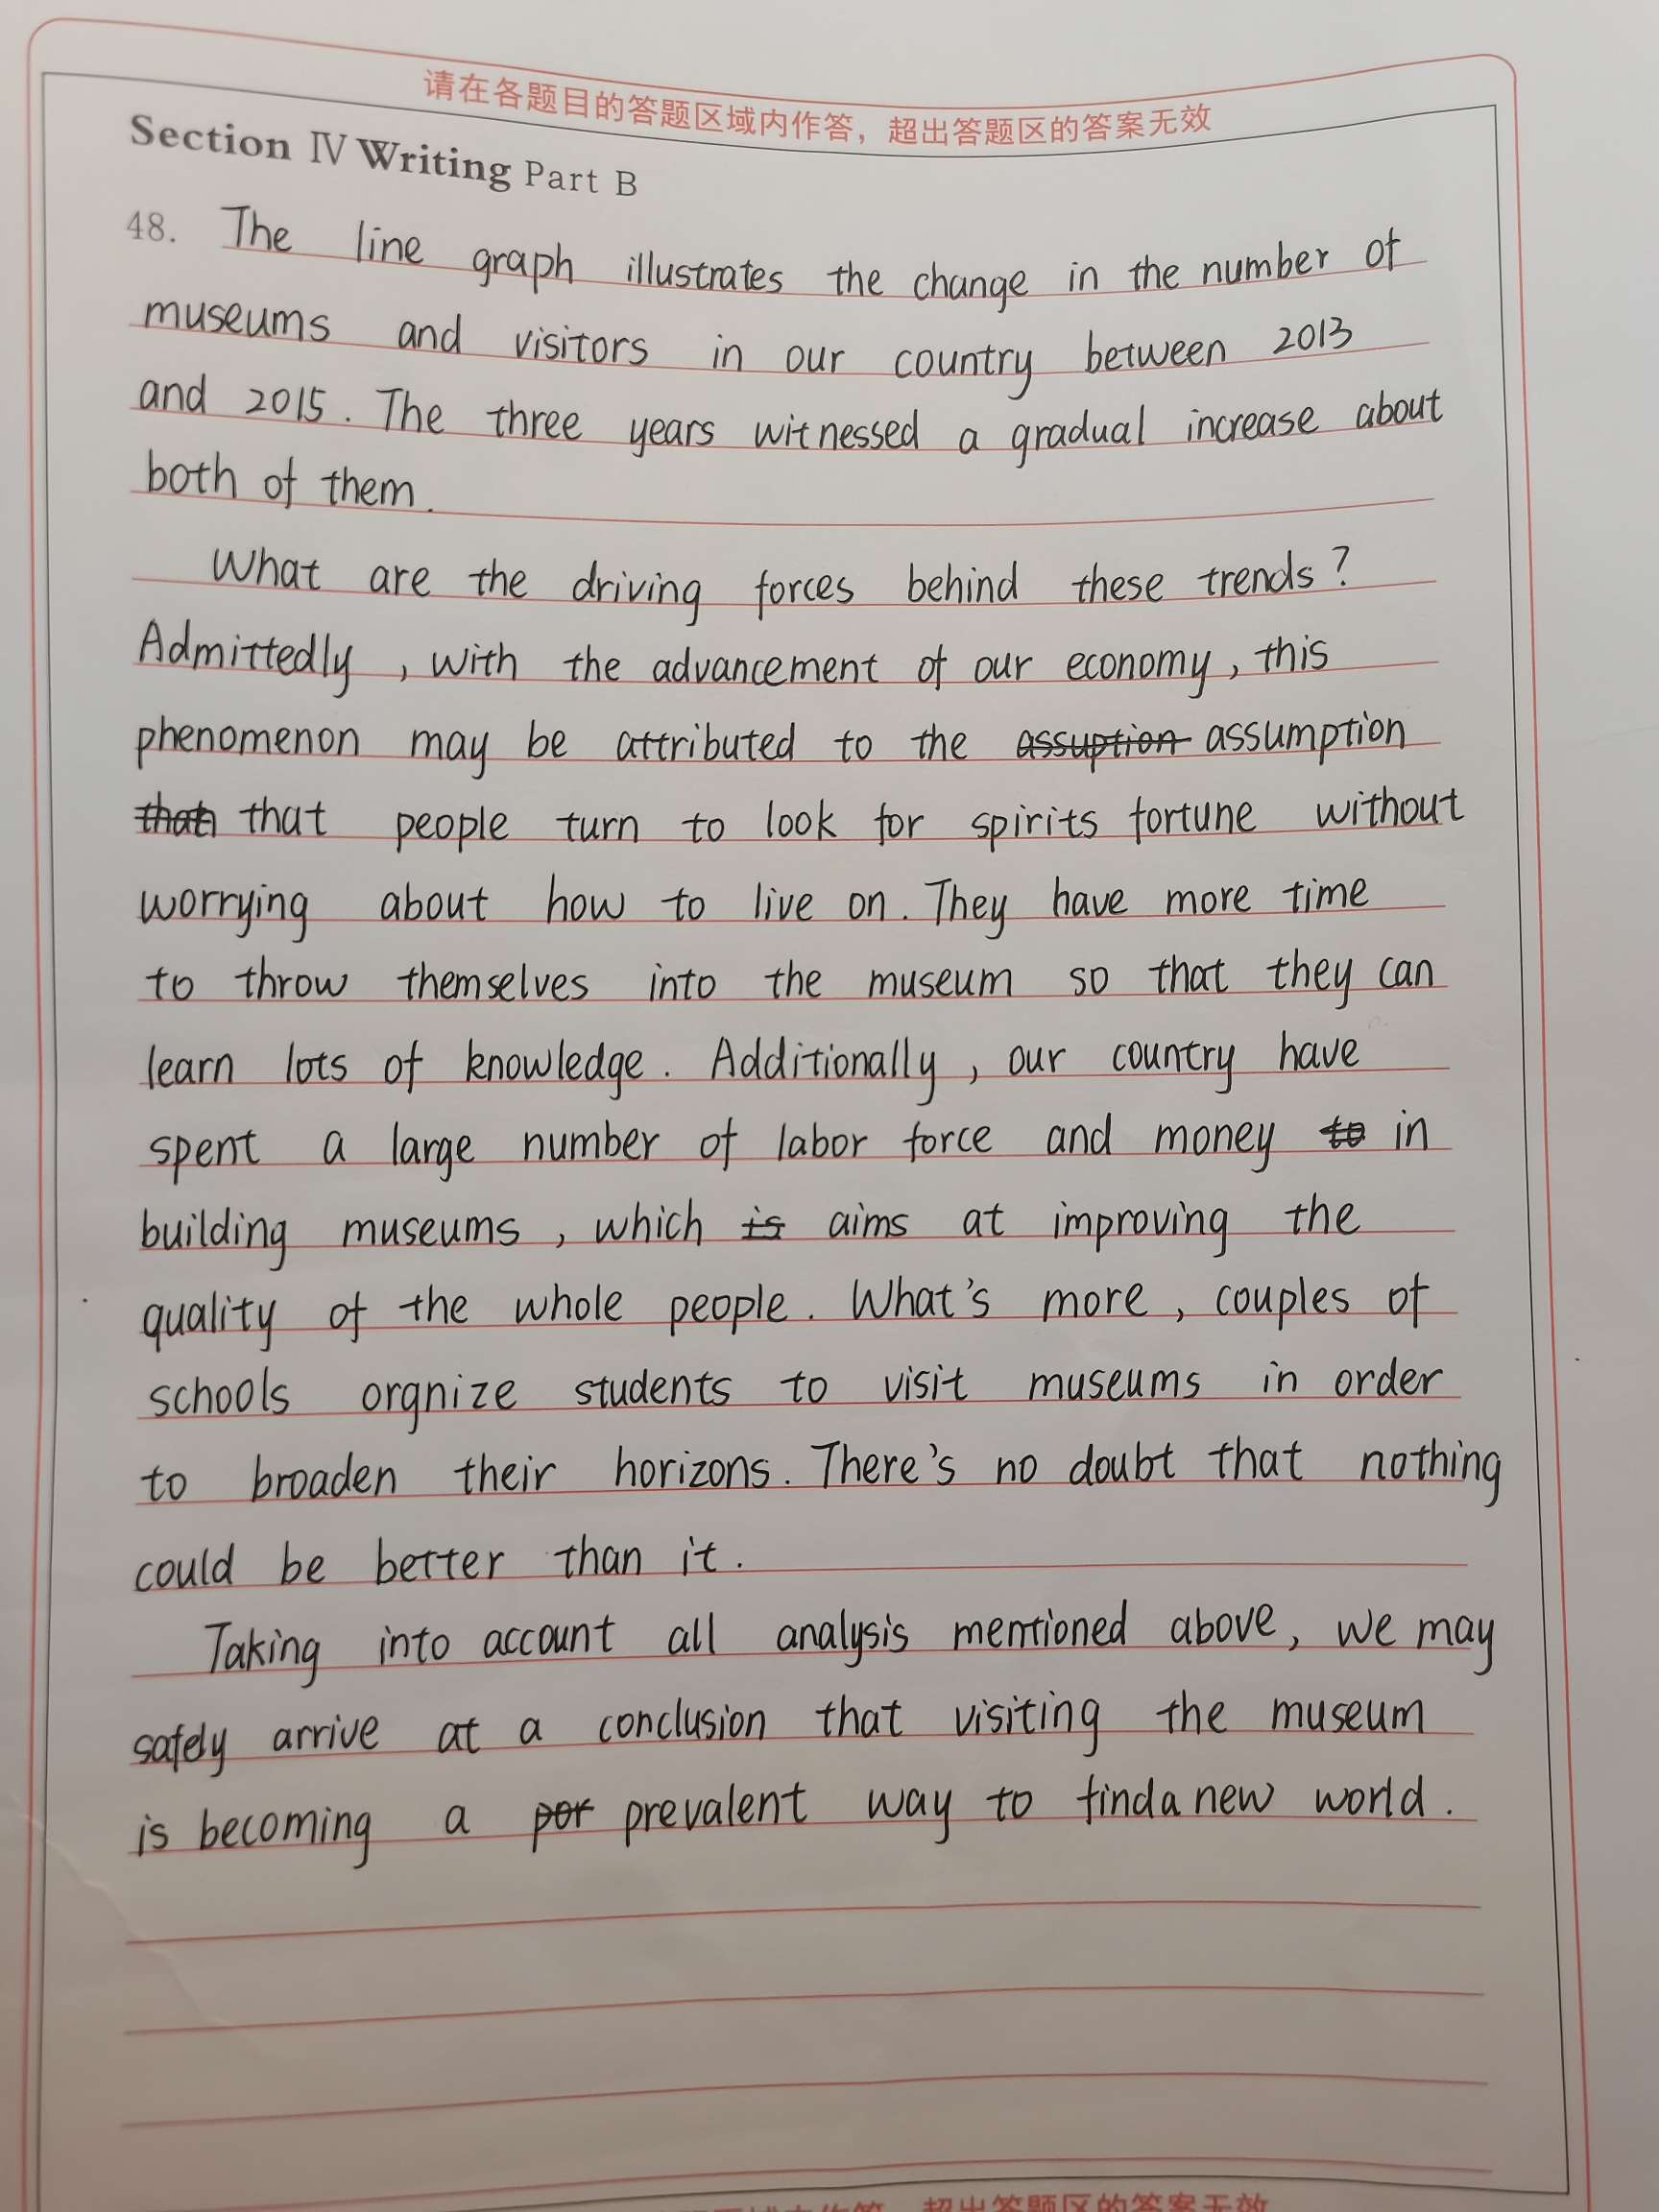 请在各题目的答题区域内作答，超出答题区的答案无效
Section Ⅳ Writing Part B
48. The line graph illustrates the change in the number of
museums and visitors in our country between 2013
and 2015. The three years witnessed a gradual increase about
both of them.
What are the driving forces behind these trends?
Admittedly, with the advancement of our economy, this
phenomenon may be attributed to the assuption assumption
that that people turn to look for spirits fortune without
worrying about how to live on. They have more time
to throw themselves into the museum so that they can
learn lots of knowledge. Additionally, our country have
spent a large number of labor force and money to in
building museums, which is aims at improving the
quality of the whole people. What's more, couples of
schools orgnize students to visit museums in order
to broaden their horizons. There's no doubt that nothing
could be better than it.
Taking into account all analysis mentioned above, we may
safely arrive at a conclusion that visiting the museum
is becoming a por prevalent way to find a new world.
超出答题区的答案无效